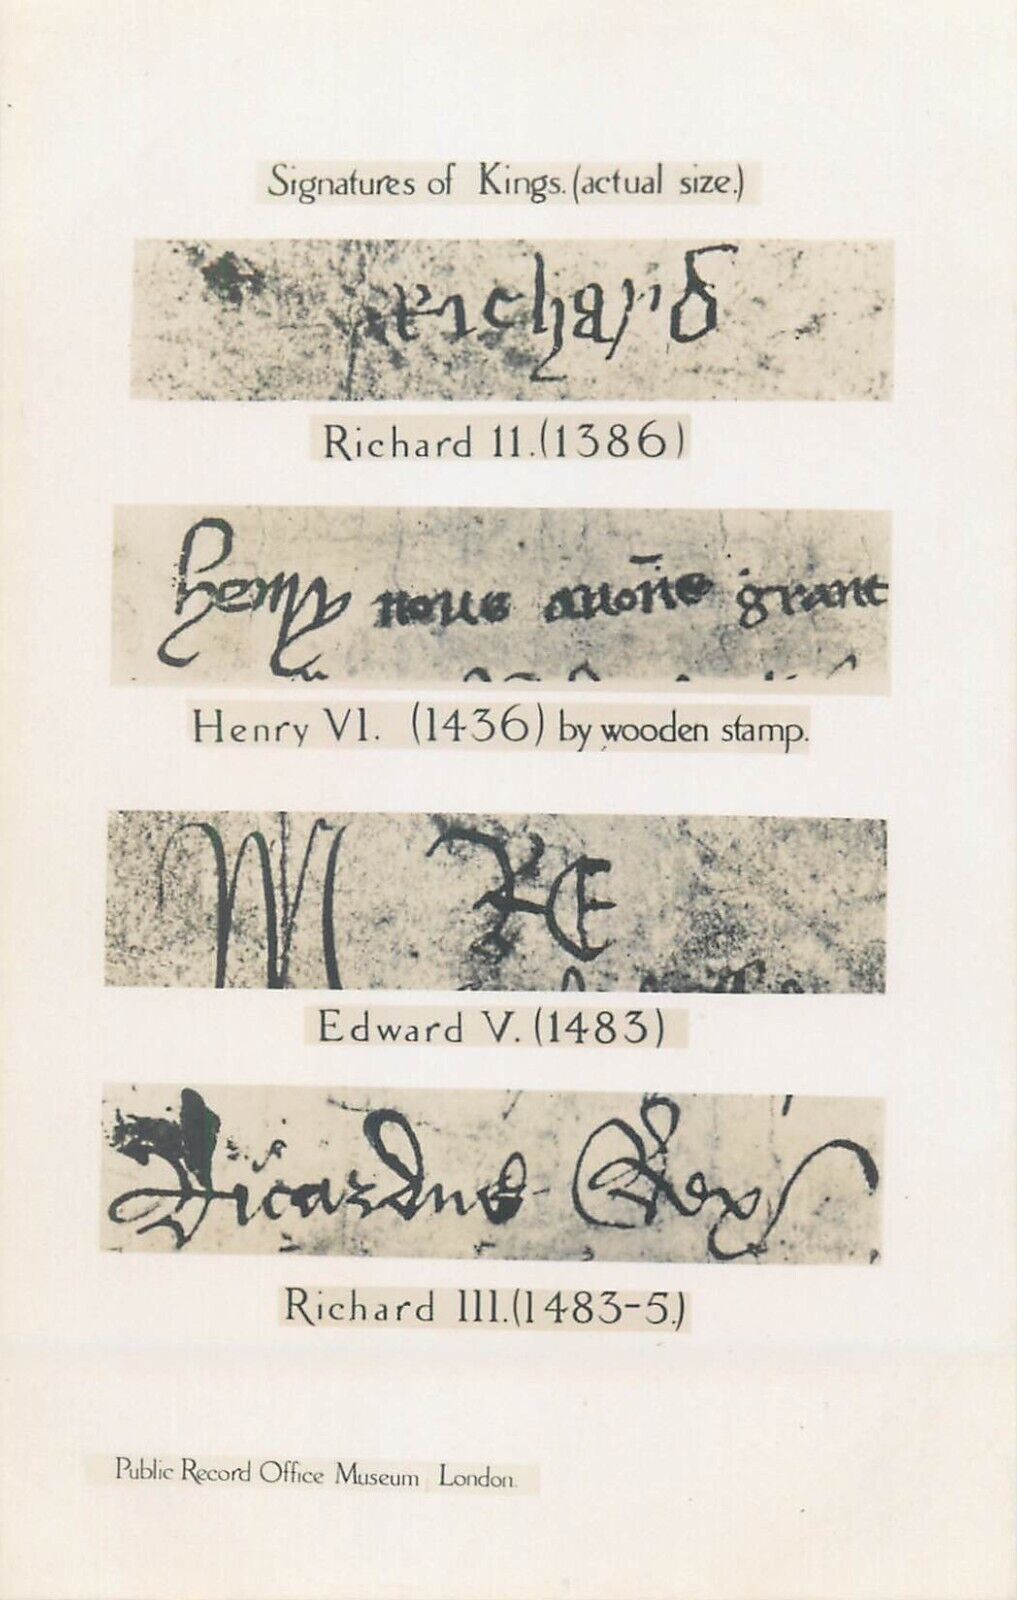 Signatures of Kings. (actual size.)
Richard
Richard II. (1386)
henry nous auōns grant
Henry VI. (1436) by wooden stamp.
R E
Edward V. (1483)
Ricardus Rex
Richard III. (1483-5.)
Public Record Office Museum London.